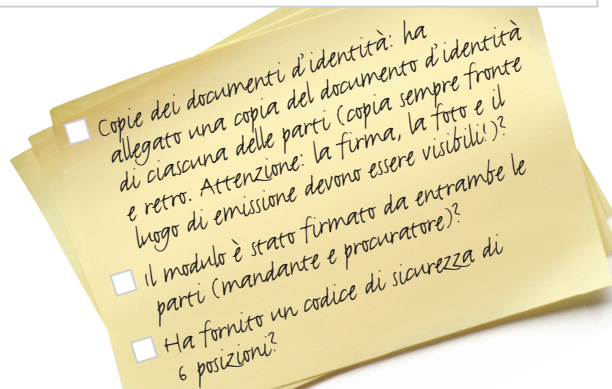 Copie dei documenti d'identità: ha
allegato una copia del documento d'identità
di ciascuna delle parti (copia sempre fronte
e retro. Attenzione: la firma, la foto e il
luogo di emissione devono essere visibili!)?
Il modulo è stato firmato da entrambe le
parti (mandante e procuratore)?
Ha fornito un codice di sicurezza di
6 posizioni?